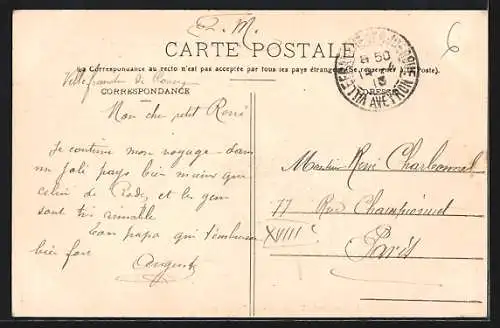 F. M.
CARTE POSTALE
La Correspondance au recto n'est pas acceptée par tous les pays étrangers (Se renseigner à la Poste).
Villefranche de Rouergue
CORRESPONDANCE
VILLEFRANCHE-DE-ROUERGUE
AVEYRON
8 50
13
6
Mon cher petit René
Je continue mon voyage dans
un joli pays bien mieux que
celui de Rodez et les gens
sont très aimable
Ton papa qui t'embrasse
bien fort
Monsieur René Charbonnel
77 Rue Championnet
XVIIIe
Paris